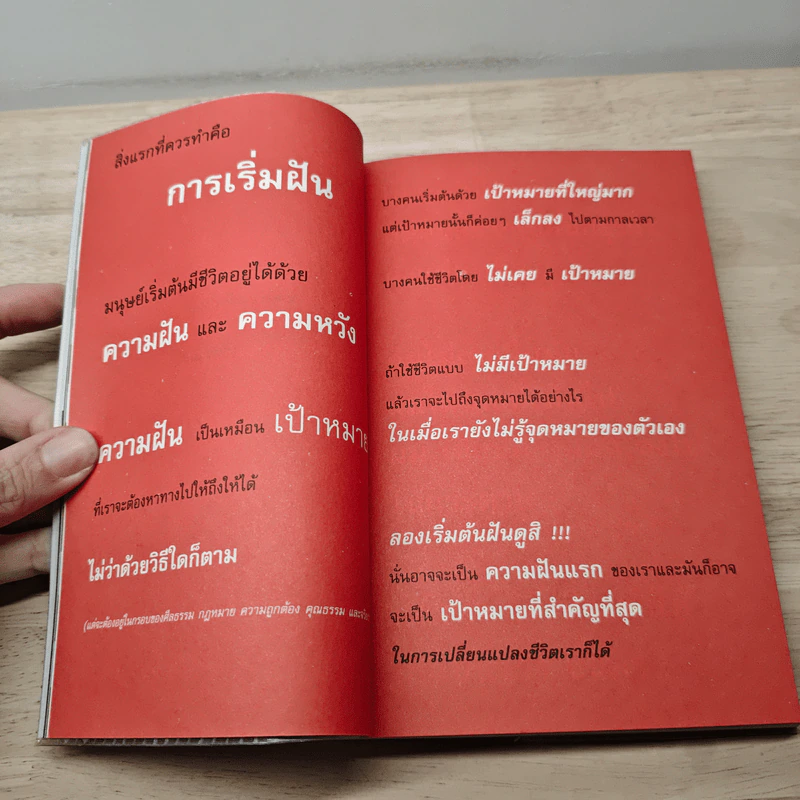 สิ่งแรกที่ควรทำคือ
การเริ่มฝัน
มนุษย์เริ่มต้นมีชีวิตอยู่ได้ด้วย
ความฝัน และ ความหวัง
ความฝัน เป็นเหมือน เป้าหมาย
ที่เราจะต้องหาทางไปให้ถึงให้ได้
ไม่ว่าด้วยวิธีใดก็ตาม
(แต่จะต้องอยู่ในกรอบของศีลธรรม กฎหมาย ความถูกต้อง คุณธรรม
บางคนเริ่มต้นด้วย เป้าหมายที่ใหญ่มาก
แต่เป้าหมายนั้นก็ค่อยๆ เล็กลง ไปตามกาลเวลา
บางคนใช้ชีวิตโดย ไม่เคย มี เป้าหมาย
ถ้าใช้ชีวิตแบบ ไม่มีเป้าหมาย
แล้วเราจะไปถึงจุดหมายได้อย่างไร
ในเมื่อเรายังไม่รู้จุดหมายของตัวเอง
ลองเริ่มต้นฝันดูสิ !!!
นั่นอาจจะเป็น ความฝันแรก ของเราและมันก็อาจ
จะเป็น เป้าหมายที่สำคัญที่สุด
ในการเปลี่ยนแปลงชีวิตเราก็ได้